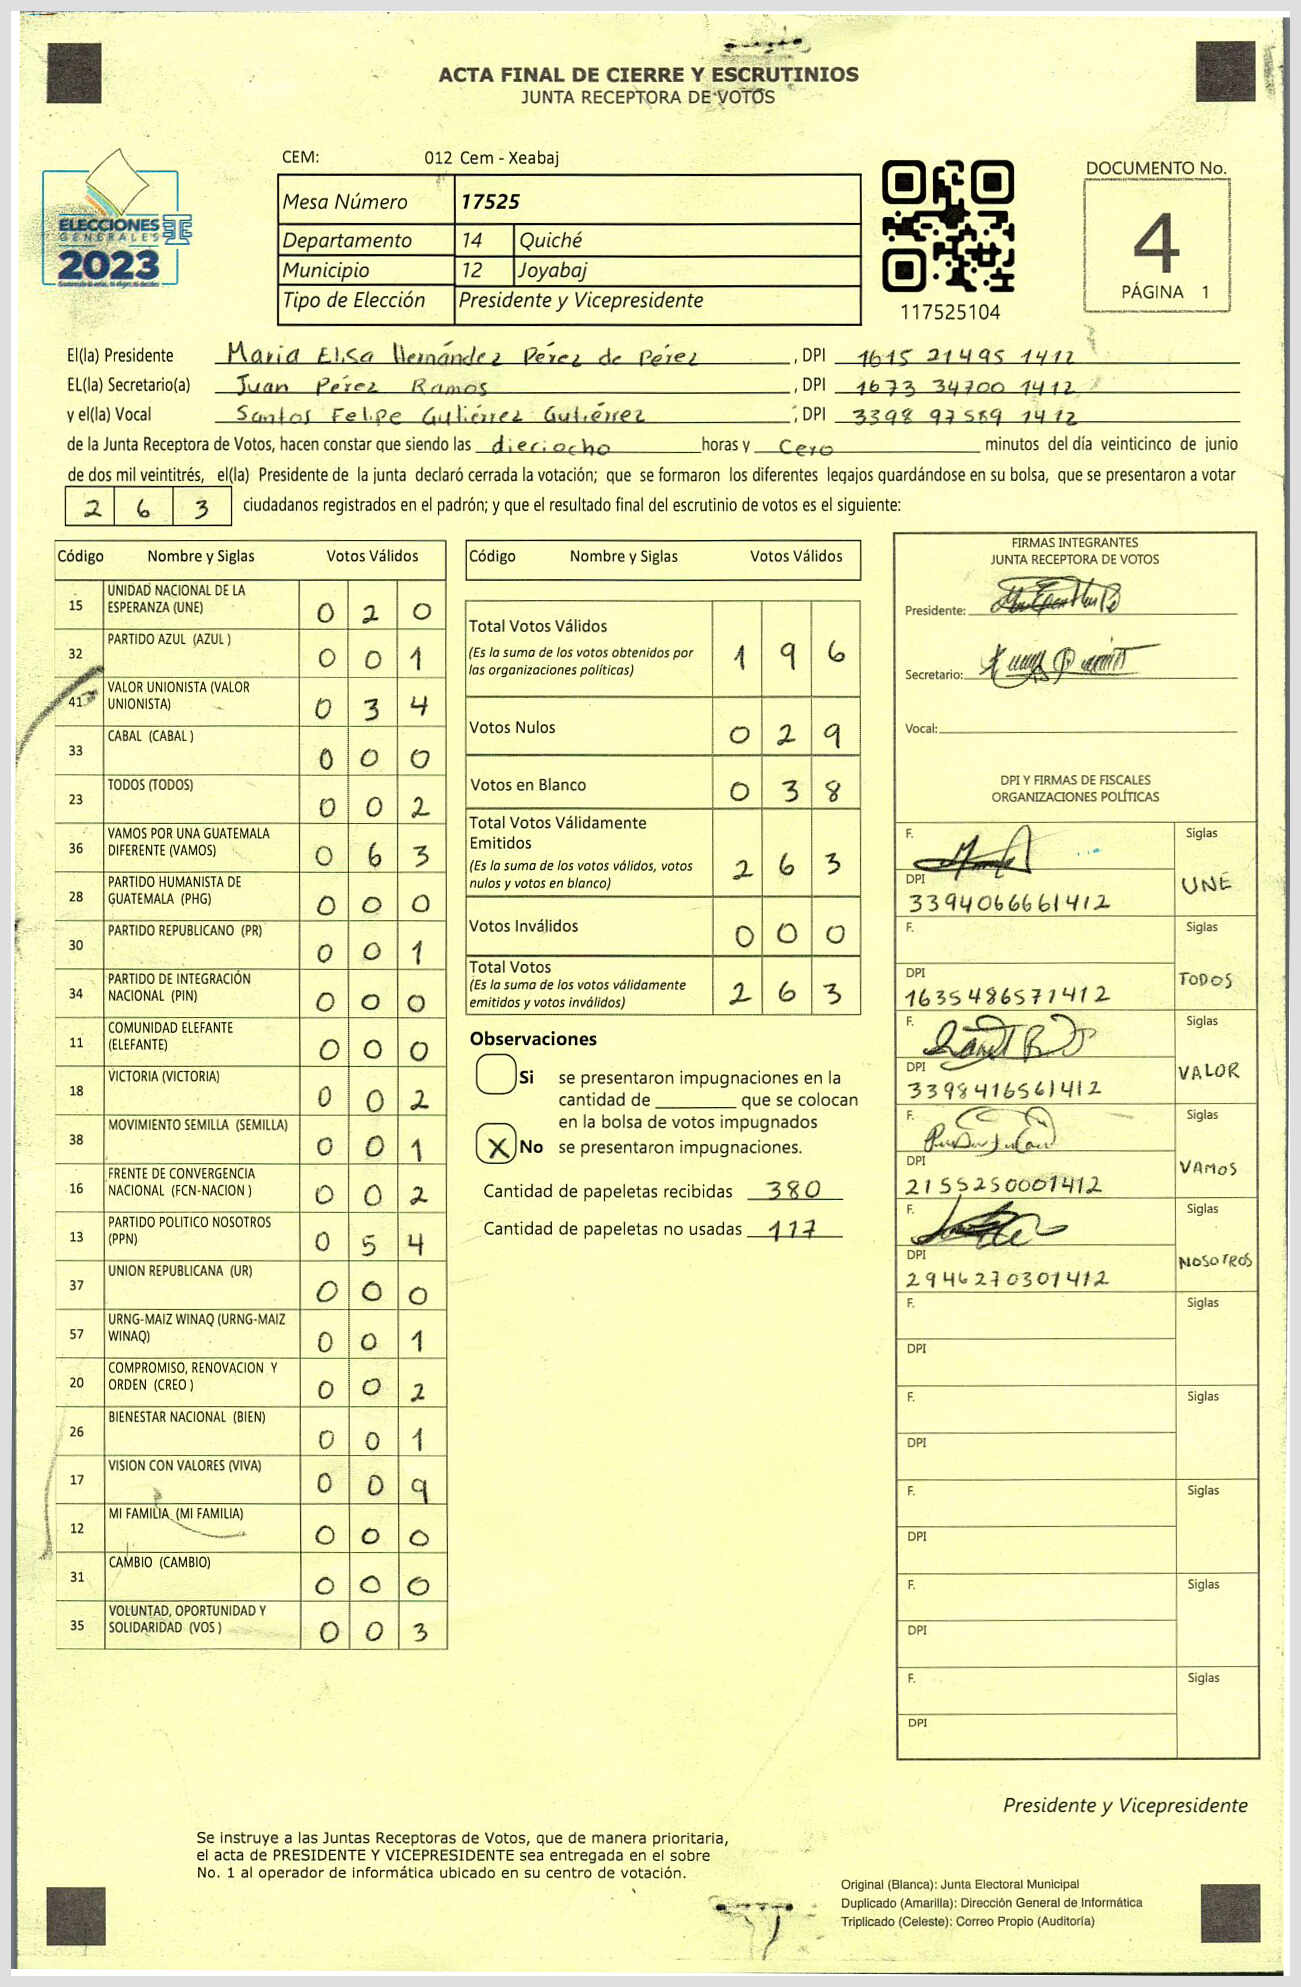 ACTA FINAL DE CIERRE Y ESCRUTINIOS
JUNTA RECEPTORA DE VOTOS
ELECCIONES
GENERALES
2023
CEM: 012 Cem - Xeabaj
Mesa Número 17525
Departamento 14 Quiché
Municipio 12 Joyabaj
Tipo de Elección Presidente y Vicepresidente
117525104
DOCUMENTO No.
4
PÁGINA 1
El(la) Presidente Maria Elisa Hernández Pérez de Pérez, DPI 1615 21495 1412
EL(la) Secretario(a) Juan Pérez Ramos, DPI 1673 34700 1412
y el(la) Vocal Santos Felipe Gutiérrez Gutiérrez, DPI 3398 97589 1412
de la Junta Receptora de Votos, hacen constar que siendo las dieciocho horas y Cero minutos del día veinticinco de junio
de dos mil veintitrés, el(la) Presidente de la junta declaró cerrada la votación; que se formaron los diferentes legajos quardándose en su bolsa, que se presentaron a votar
263 ciudadanos registrados en el padrón; y que el resultado final del escrutinio de votos es el siguiente:
Código Nombre y Siglas Votos Válidos
15 UNIDAD NACIONAL DE LA ESPERANZA (UNE) 0 2 0
32 PARTIDO AZUL (AZUL ) 0 0 1
41 VALOR UNIONISTA (VALOR UNIONISTA) 0 3 4
33 CABAL (CABAL ) 0 0 0
23 TODOS (TODOS) 0 0 2
36 VAMOS POR UNA GUATEMALA DIFERENTE (VAMOS) 0 6 3
28 PARTIDO HUMANISTA DE GUATEMALA (PHG) 0 0 0
30 PARTIDO REPUBLICANO (PR) 0 0 1
34 PARTIDO DE INTEGRACIÓN NACIONAL (PIN) 0 0 0
11 COMUNIDAD ELEFANTE (ELEFANTE) 0 0 0
18 VICTORIA (VICTORIA) 0 0 2
38 MOVIMIENTO SEMILLA (SEMILLA) 0 0 1
16 FRENTE DE CONVERGENCIA NACIONAL (FCN-NACION ) 0 0 2
13 PARTIDO POLITICO NOSOTROS (PPN) 0 5 4
37 UNION REPUBLICANA (UR) 0 0 0
57 URNG-MAIZ WINAQ (URNG-MAIZ WINAQ) 0 0 1
20 COMPROMISO, RENOVACION Y ORDEN (CREO ) 0 0 2
26 BIENESTAR NACIONAL (BIEN) 0 0 1
17 VISION CON VALORES (VIVA) 0 0 9
12 MI FAMILIA (MI FAMILIA) 0 0 0
31 CAMBIO (CAMBIO) 0 0 0
35 VOLUNTAD, OPORTUNIDAD Y SOLIDARIDAD (VOS ) 0 0 3
Código Nombre y Siglas Votos Válidos
Total Votos Válidos 1 9 6
(Es la suma de los votos obtenidos por
las organizaciones políticas)
Votos Nulos 0 2 9
Votos en Blanco 0 3 8
Total Votos Válidamente
Emitidos 2 6 3
(Es la suma de los votos válidos, votos
nulos y votos en blanco)
Votos Inválidos 0 0 0
Total Votos 2 6 3
(Es la suma de los votos válidamente
emitidos y votos inválidos)
Observaciones
Si se presentaron impugnaciones en la
cantidad de ________ que se colocan
en la bolsa de votos impugnados
X No se presentaron impugnaciones.
Cantidad de papeletas recibidas 380
Cantidad de papeletas no usadas 117
FIRMAS INTEGRANTES
JUNTA RECEPTORA DE VOTOS
Presidente:
Secretario:
Vocal:
DPI Y FIRMAS DE FISCALES
ORGANIZACIONES POLÍTICAS
F. Siglas
DPI UNE
3394066661412
F. Siglas
DPI TODOS
1635486571412
F. Siglas
DPI VALOR
3398416561412
F. Siglas
DPI VAMOS
2155250001412
F. Siglas
DPI NOSOTROS
2946270301412
F. Siglas
DPI
F. Siglas
DPI
F. Siglas
DPI
F. Siglas
DPI
F. Siglas
DPI
Presidente y Vicepresidente
Se instruye a las Juntas Receptoras de Votos, que de manera prioritaria,
el acta de PRESIDENTE Y VICEPRESIDENTE sea entregada en el sobre
No. 1 al operador de informática ubicado en su centro de votación.
Original (Blanca): Junta Electoral Municipal
Duplicado (Amarilla): Dirección General de Informática
Triplicado (Celeste): Correo Propio (Auditoría)